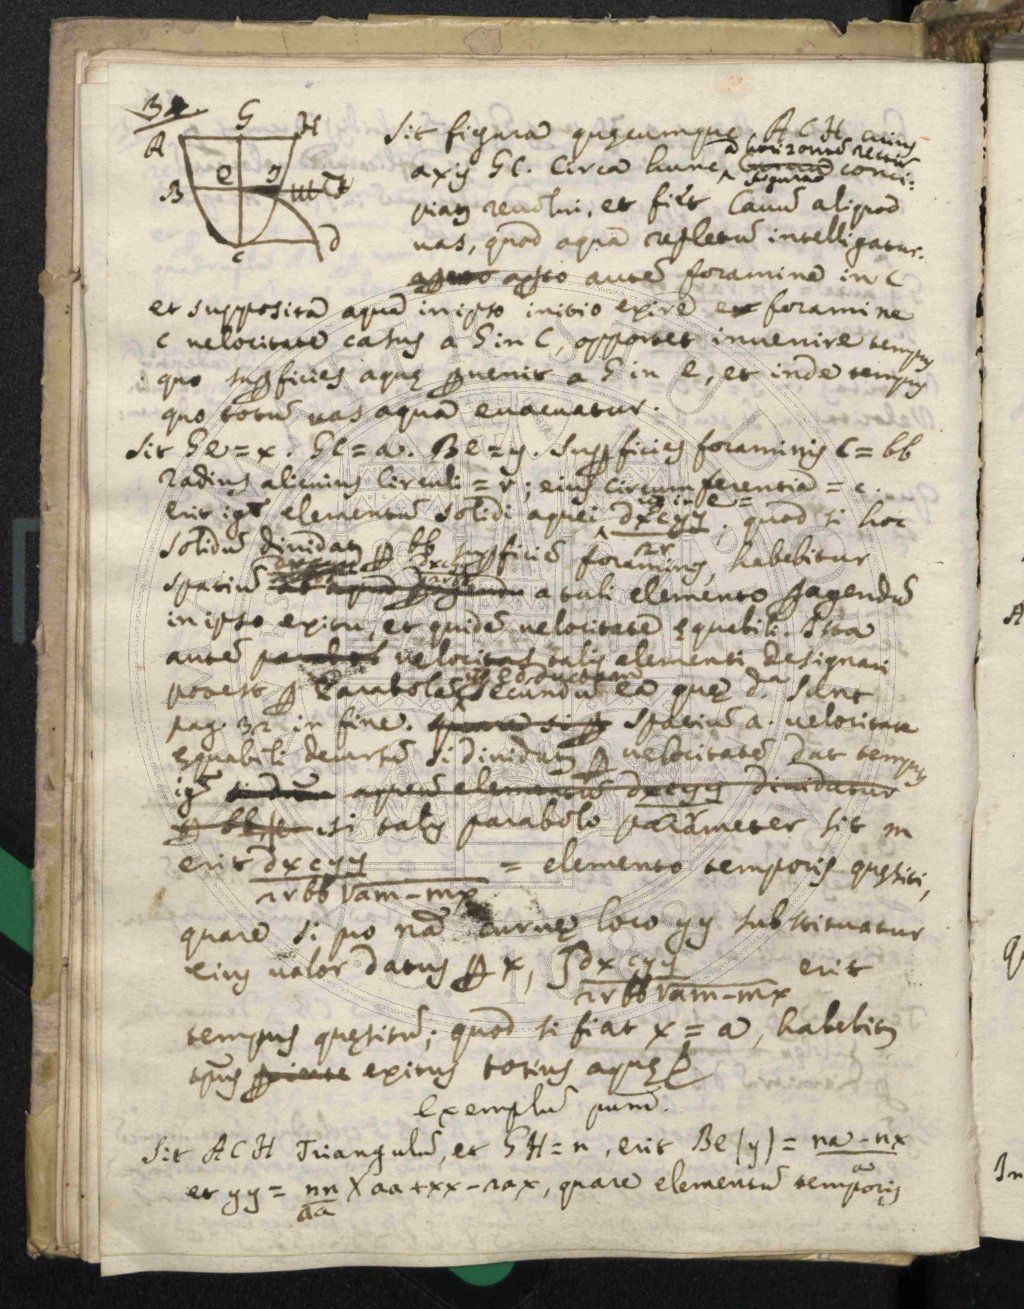 34.
G H
A
B e g m F
C D
Sit figura quęcumque ACH cuius
axis GC. Circa hunc ad horizontẽ rectũ conci-
figura
piatʳ reuolui, et fiet Cauũ aliquod
uas, quod aquâ repletũ intelligatur.
apto autẽ foramine in C
et suppositâ aquâ in ipso initio exire ex foramine
C uelocitate casus a G in C, opportet inuenire tempus
quo suꝑficies aquę ꝑuenit a G in e, et inde tempus
quo totũ uas aquâ euacuatur.
Sit Ge = x. GC = a. Be = y. Suꝑficies foraminis C = bb
Radius alicuius Circuli = r; eius circumferentia = c.
erit igʳ elementũ solidi aquei in e = dxcyy / 2r; quod si hoc
solidũ diuidatʳ ꝑ bb suꝑficiẽ foraminis, habebitur
spatiũ dxcyy / 2rbb a tali elemento ꝑagendũ
in ipso exitu, et quidẽ uelocitate ęquabili. Ista
autẽ uelocitas talis elementi designari
potest ꝑ Parabolę secundũ ea quę d. sunt
pag. 32 in fine. spatiũ a uelocitate
ęquabili decursũ si diuidatʳ ꝑ uelocitatẽ dat tempus
igʳ aqueũ elementũ dxcyy diuidatur
ꝑ bb si talis parabolę parameter sit m
erit dxcyy / 2rbb√am-mx = elemento temporis quęsiti,
quare si pro nâ curuę loco yy substituatur
eius ualor datus ꝑ x, ∫ dxcyy / 2rbb√am-mx erit
tempus quęsitũ; quod si fiat x = a, habebitʳ
tpus exitus totius aquę
Exemplũ primũ.
Sit ACH Triangulũ, et GH = n, erit Be (y) = na-nx / a
et yy = nn / aa X aa+xx-2ax, quare elementũ temporis